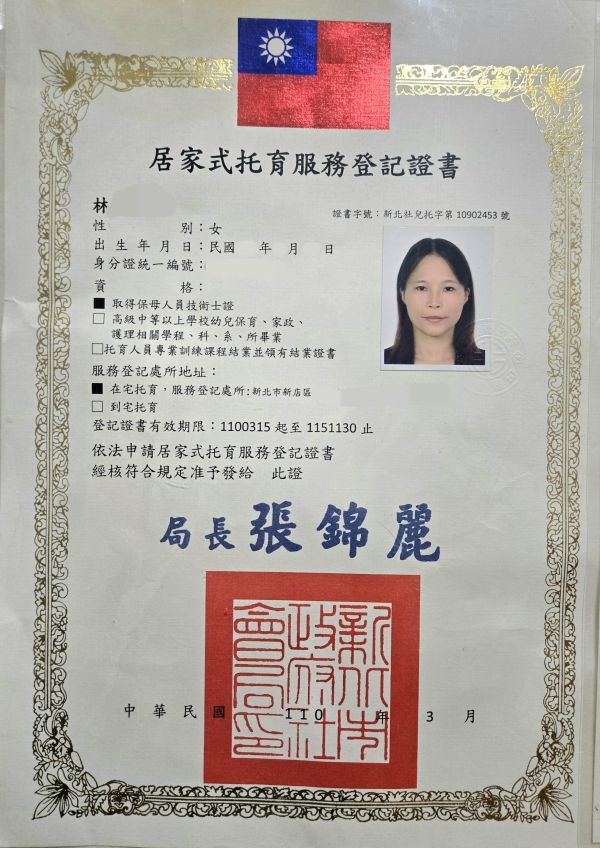 居家式托育服務登記證書
證書字號：新北社兒托字第 10902453 號
林
性別：女
出生年月日：民國 年 月 日
身分證統一編號：
資格：
■ 取得保母人員技術士證
□ 高級中等以上學校幼兒保育、家政、
護理相關學程、科、系、所畢業
□托育人員專業訓練課程結業並領有結業證書
服務登記處所地址：
■ 在宅托育，服務登記處所：新北市新店區
□ 到宅托育
登記證書有效期限：1100315 起至 1151130 止
依法申請居家式托育服務登記證書
經核符合規定准予發給 此證
局長 張錦麗
新北市政府社會局印
中華民國 110 年 3 月